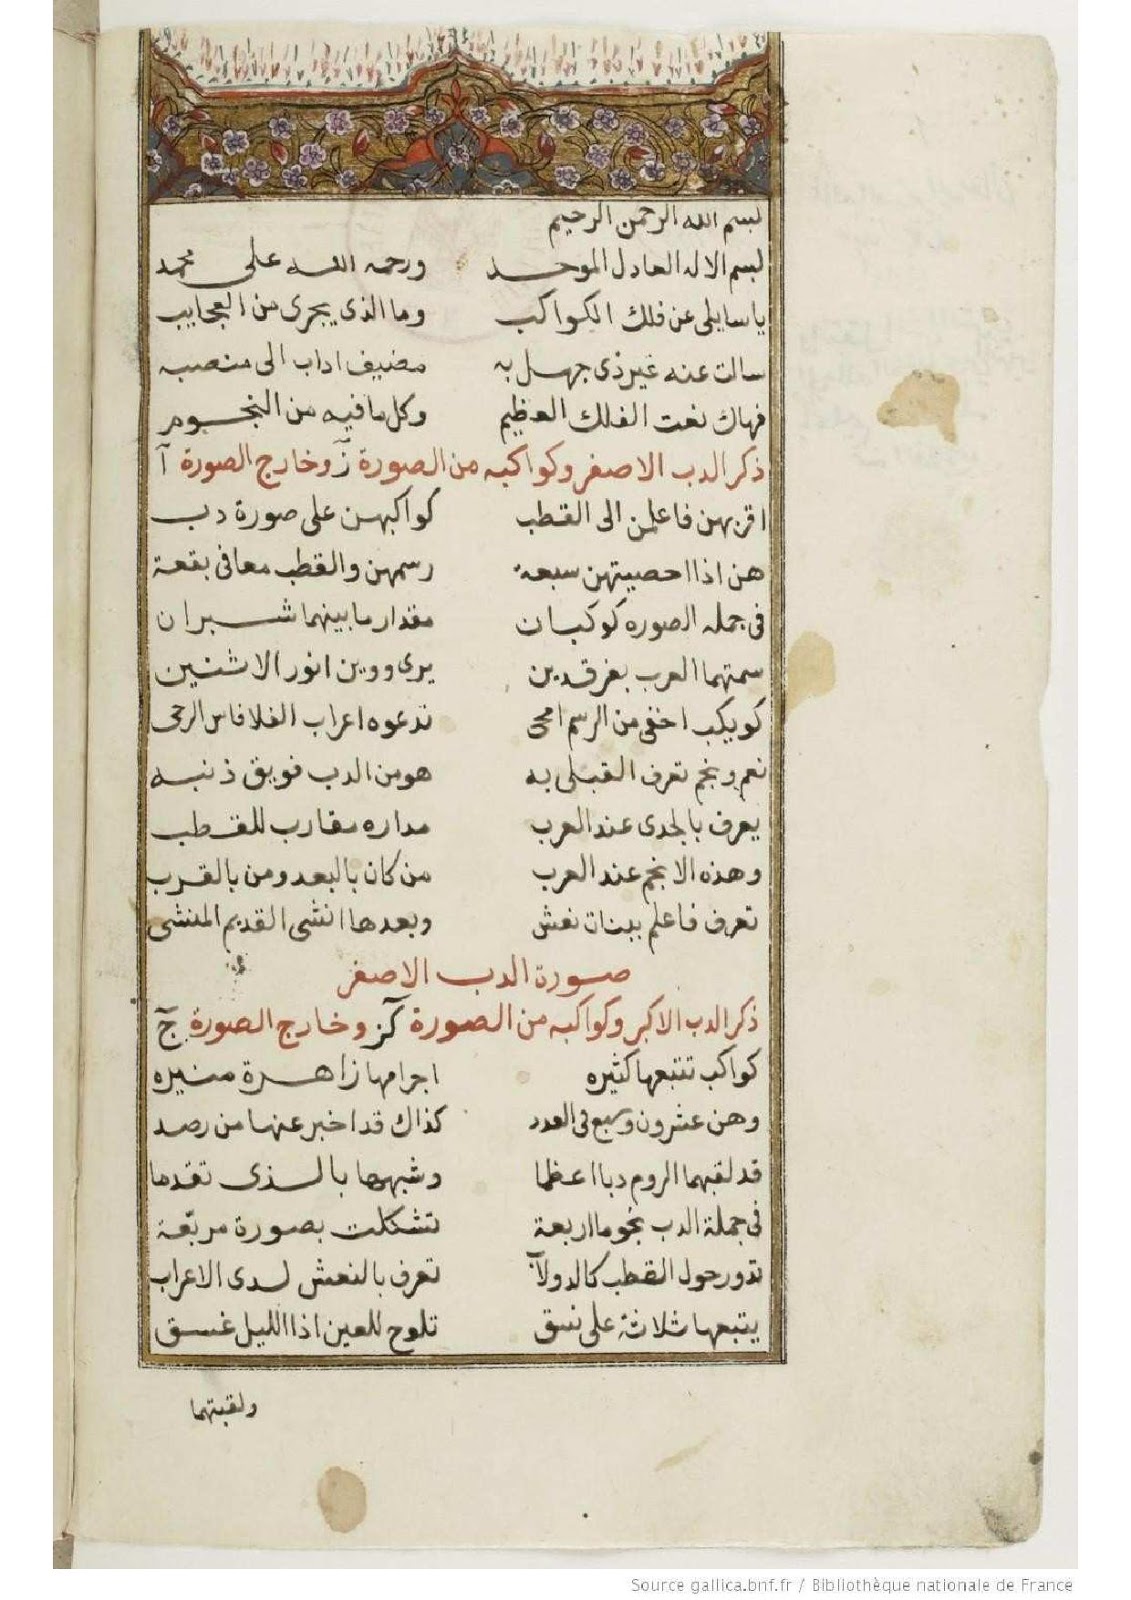 بسم الله الرحمن الرحيم
بسم الاله العادل الموحد ورحمه الله على محمد
يا سايلى عن فلك الكواكب وما الذى يجرى من العجايب
سالت عنه غير ذى جهل به مضيف اداب الى منصبه
فهاك نعت الفلك العظيم وكل ما فيه من النجوم
ذكر الدب الاصغر وكواكبه من الصورة ز وخارج الصورة آ
اقربهن فاعلمن الى القطب كواكبهن على صورة دب
هن اذا احصيتهن سبعه رسمهن والقطب معا فى بقعة
فى جمله الصوره كوكبان مقدار ما بينهما شبران
سمتهما العرب بفرقدين يرى ووين انور الاثنين
كويكب اخفى من الرسم امحى تدعوه اعراب الفلا فاس الرحى
نعم ونجم تعرف القبلى به هو من الدب فويق ذنبه
يعرف بالجدى عند العرب مداره مقارب للقطب
وهذه الانجم عند العرب من كان بالبعد ومن بالقرب
تعرف فاعلم ببنات نعش وبعدها انشى القديم المنشى
صورة الدب الاصغر
ذكر الدب الاكبر وكواكبه من الصورة كز وخارج الصورة ح
كواكب تتبعها كثيره اجرامها زاهرة منيره
وهن عشرون وسبع فى العدد كذاك قد اخبر عنها من رصد
قد لقبهما الروم دبا اعظما وشبهها بالذى تقدما
فى جملة الدب نجوما اربعة تشكلت بصورة مربعة
تدور حول القطب كالدولاب تعرف بالنعش لدى الاعراب
يتبعها ثلاثة على نسق تلوح للعين اذا الليل غسق
ولقبتهما
Source gallica.bnf.fr / Bibliothèque nationale de France